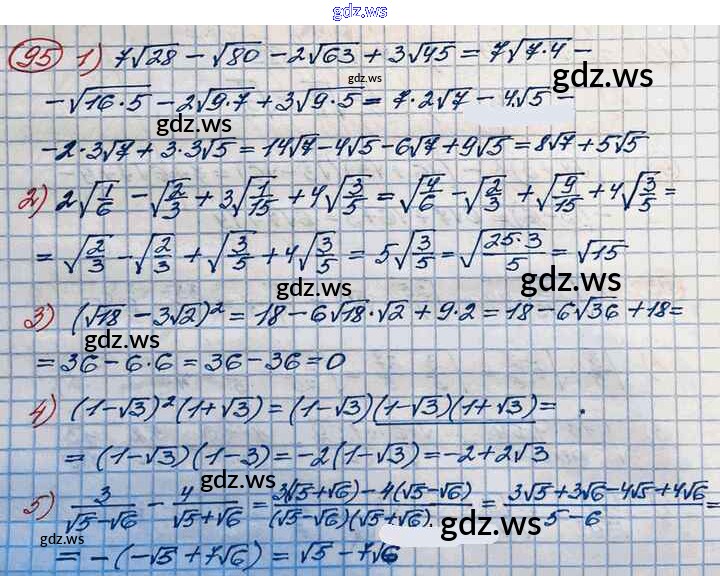 gdz.ws
95 1) 7√28 − √80 − 2√63 + 3√45 = 7√(7·4) −
gdz.ws
− √(16·5) − 2√(9·7) + 3√(9·5) = 7·2√7 − 4√5 −
gdz.ws
gdz.ws
− 2·3√7 + 3·3√5 = 14√7 − 4√5 − 6√7 + 9√5 = 8√7 + 5√5
2) 2√(1/6) − √(2/3) + 3√(1/15) + 4√(3/5) = √(4/6) − √(2/3) + √(9/15) + 4√(3/5) =
gdz.ws
= √(2/3) − √(2/3) + √(3/5) + 4√(3/5) = 5√(3/5) = √(25·3/5) = √15
gdz.ws
gdz.ws
3) (√18 − 3√2)² = 18 − 6√18·√2 + 9·2 = 18 − 6√36 + 18 =
gdz.ws
= 36 − 6·6 = 36 − 36 = 0
gdz.ws
4) (1−√3)²(1+√3) = (1−√3)(1−√3)(1+√3) =
gdz.ws
= (1−√3)(1−3) = −2(1−√3) = −2+2√3
gdz.ws
gdz.ws
5) 3/(√5−√6) − 4/(√5+√6) = (3(√5+√6)−4(√5−√6))/((√5−√6)(√5+√6)) = (3√5+3√6−4√5+4√6)/(5−6) =
gdz.ws
gdz.ws
= −(−√5 + 7√6) = √5 − 7√6
gdz.ws